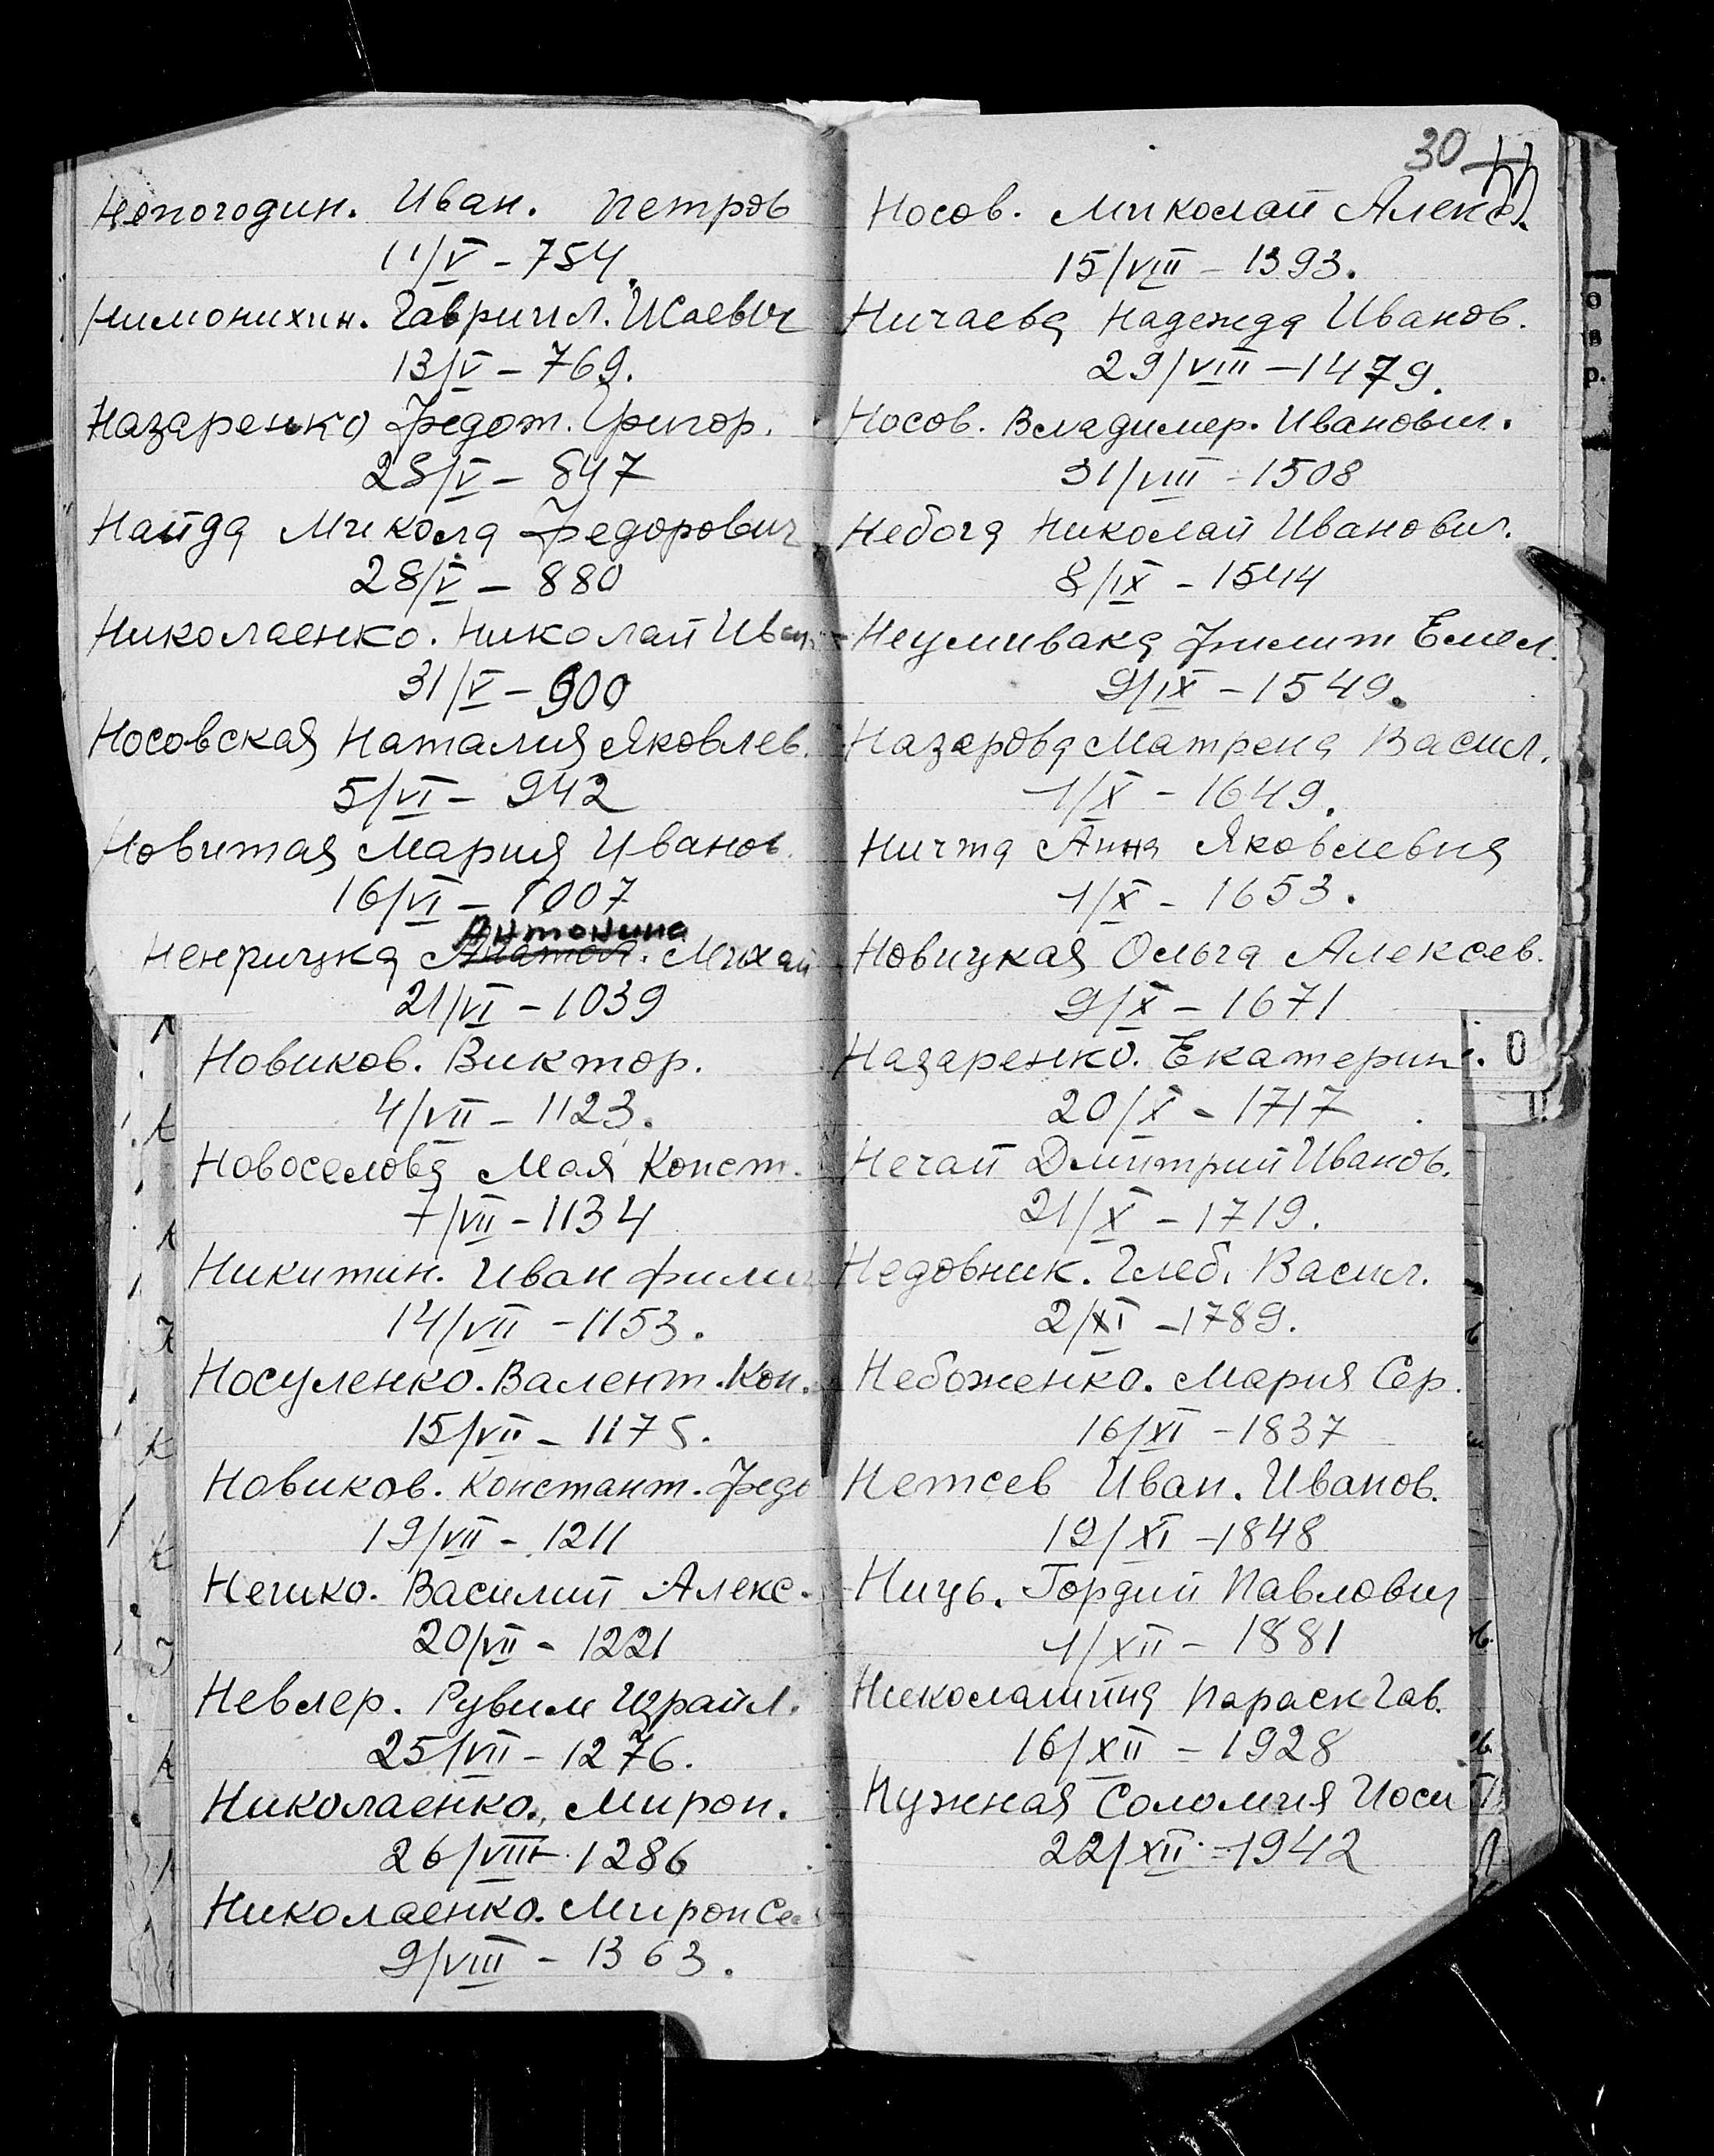 Непогодин. Иван. Петров
11/V - 754.
Нимонихин. Гавриил. Исаевич
13/V - 769.
Назаренко Федот. Григор.
28/V - 847
Найда Микола Федорович
28/V - 880
Николаенко. Николай Иван
31/V - 900
Носовская Наталия Яковлев.
5/VI - 942
Новитая Мария Иванов.
16/VI - 1007
Антонина
Ненрицка Анатол. Михай
21/VI - 1039
Новиков. Виктор.
4/VII - 1123.
Новоселова Мая Конст.
7/VII - 1134
Никитин. Иван Фили
14/VII - 1153.
Носуленко. Валент. Кон.
15/VII - 1175.
Новиков. Констант. Федо
19/VII - 1211
Нешко. Василий Алекс.
20/VII - 1221
Невлер. Рувим Израйл.
25/VII - 1276.
Николаенко. Мирон.
26/VIII - 1286
Николаенко. Мирон Се
9/VIII - 1363.
30
Носов. Миколай Алекс.
15/VIII - 1393.
Ничаева Надежда Иванов.
29/VIII - 1479.
Носов. Владимер. Иванович.
31/VIII - 1508
Небога Николай Иванович.
8/IX - 1544
Неумивака Филип Емел.
9/IX - 1549.
Назарова Матрена Васил.
1/X - 1649.
Ничта Анна Яковлевна
1/X - 1653.
Новицкая Ольга Алексев.
9/X - 1671
Назаренко. Екатерин.
20/X - 1717
Нечай Дмитрий Иванов.
21/X - 1719.
Недовник. Глеб. Васил.
2/XI - 1789.
Небоженко. Мария Сер.
16/XI - 1837
Нетсев Иван. Иванов.
19/XI - 1848
Ниць. Гордий Павлович
1/XII - 1881
Николайина Параск Гав.
16/XII - 1928
Нужная Соломия Иоси
22/XII - 1942
О